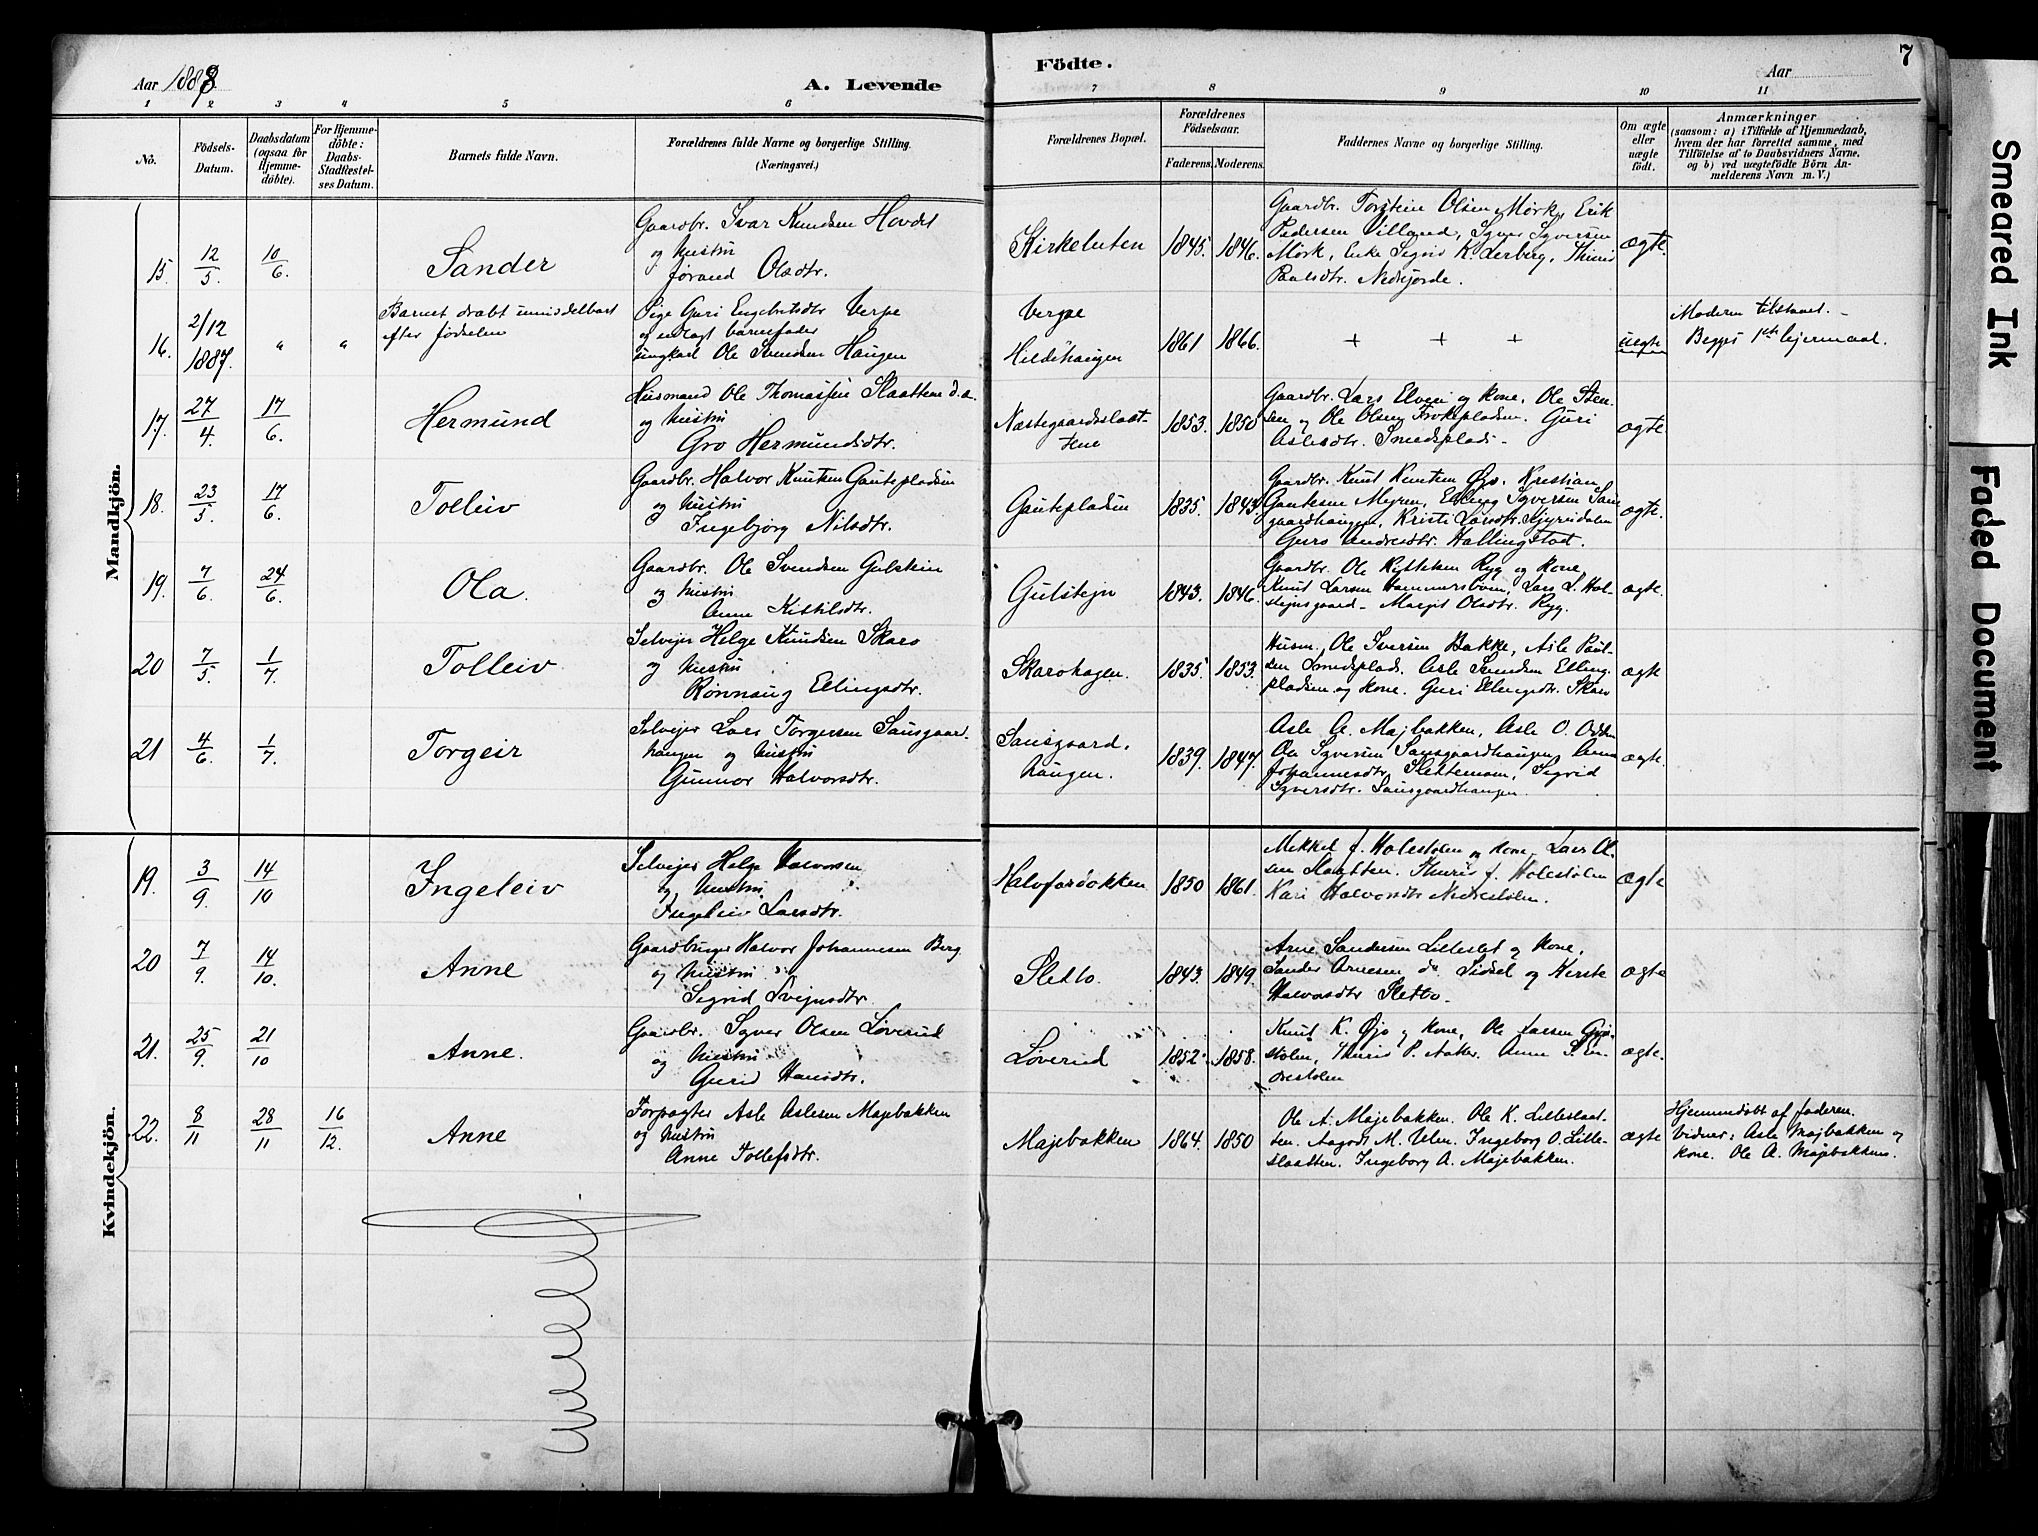 Aar 1888.
A. Levende
Födte.
Aar
7
1 2 3 4 5 6 7 8 9 10 11
No.
Födsels-
Datum.
Daabsdatum
(ogsaa for
Hjemme-
döbte).
For Hjemme-
döbte:
Daabs-
Stadfæstel-
ses Datum.
Barnets fulde Navn.
Forældrenes fulde Navne og borgerlige Stilling.
(Næringsvei.)
Forældrenes Bopæl.
Forældrenes
Födselsaar.
Faderens. Moderens.
Faddernes Navne og borgerlige Stilling.
Om ægte
eller
uægte
födt.
Anmærkninger
(saasom: a) i Tilfælde af Hjemmedaab,
hvem der har forrettet samme, med
Tilföielse af to Daabsvidners Navne,
og b) ved uægtefödte Börn An-
melderens Navn m. V.)
Mandkjön.
15. 12/5. 10/6. Sander
Gaardbr. Ivar Knudsen Hovdet
og hustru
Jørand Olsdtr.
Kirkeluten 1845. 1846.
Gaardbr. Torstein Olsen Mørk, Erik
Pedersen Villand, Syver Syversen
Mørk, Enke Sigrid K. Lerberg, Thurid
Paulsdtr. Nedrejorde.
ægte.
16. 2/12 1887. " "
Barnet dræbt umiddelbart
efter fødselen
Pige Guri Engebritsdtr Verpe
og udlagt barnefader
ungkarl Ole Svendsen Haugen
Verpe
Hildehaugen 1861 1866.
+ + +
uægte
Moderen tilstaaet. -
Begges 1ste lejermaal.
17. 27/4. 17/6. Hermund
Husmand Ole Thomassen Slaatten d.a.
og hustru
Gro Hermundsdtr.
Næstegaardsslaat-
tene 1853. 1858
Gaardbr. Lars Elven og kone, Ole Sten-
sen og Ole Olsen Trokepladsen. Guri
Aslesdtr. Smedsplads -
ægte
18. 23/5. 17/6. Tolleiv
Gaardbr. Halvor Knutsen Gautepladsen
og hustru
Ingebjørg Nilsdtr.
Gautepladsen 1835. 1843.
Gaardbr. Knut Knutsen Øjo, Kristian
Gautesen Myren, Elling Syversen Sans-
gaardhaugen, Kristi Larsdtr. Gjerisdalen
Guro Andresdtr. Hallingstad.
ægte.
19. 7/6. 24/6. Ola.
Gaardbr. Ole Svendsen Gulstein
og hustru
Anne Kittilsdtr.
Gulstejn 1843. 1846.
Gaardbr. Ole Kittilsen Ryg og kone,
Knut Larsen Hammersbøen, Lars L. Hol-
stejnsgaard - Margit Olsdtr. Ryg.
ægte.
20 7/5. 1/7. Tolleiv
Selvejer Helge Knudsen Skaro
og hustru
Rønnaug Ellingsdtr.
Skarohagen. 1835. 1853.
Husm. Ole Iversen Bakke, Asle Paul-
sen Smedsplads. Asle Svendsen Elling-
pladsen og kone. Guri Ellingsdtr. Skaro
ægte
21 4/6. 1/7. Torgeir
Selvejer Lars Torgersen Sansgaard-
haugen og hustru
Gunnor Halvorsdtr.
Sansgaard-
haugen. 1839. 1847.
Asle A. Majbakken, Asle O. Odden
Ole Syversen Sansgaardhaugen, Anna
Johannesdtr. Slettemoen, Sigrid
Syversdtr. Sansgaardhaugen.
ægte.
Kvindekjön.
19. 3/9. 14/10 Ingeleiv
Selvejer Helge Halvorsen
og hustru
Ingeleiv Larsdtr.
Halvfarsokken 1850 1861.
Mikkel J. Holestølen og kone, Lars Ol-
sen Slaatten. Thuris J. Holestølen
Kari Halvorsdtr Nedrestølen.
ægte
20 7/9. 14/10. Anne
Gaardbruger Halvor Johannesen Berg
og hustru
Sigrid Svejnsdtr.
Sletto. 1843. 1849.
Arne Sandersen Lilleslet og kone,
Sander Arnesen do Sidsel og Kirste
Halvorsdtr Sletto.
ægte
21. 25/9. 21/10 Anne.
Gaardbr. Syver Olsen Løverud
og hustru
Gurid Hansdtr.
Løverud 1852. 1858.
Knut K. Øjo og kone, Ole Larsen Gjø-
stølen, Thuris P. Aatter. Anne S. En-
drestølen
ægte.
22. 8/11 28/11 16/12. Anne
Forpagter Asle Aslesen Majebakken
og hustru
Anne Tollefsdtr.
Majebakken 1864. 1850
Ole A. Majebakken. Ole K. Lilleslaat-
ten. Aagot M. Ulen. Ingeborg O. Lille-
slaatten. Ingeborg A. Majebakken.
ægte
Hjemmedøbt af faderen.
Vidner: Asle Majbakken og
kone. Ole A. Majebakken.
Smeared Ink
Faded Document